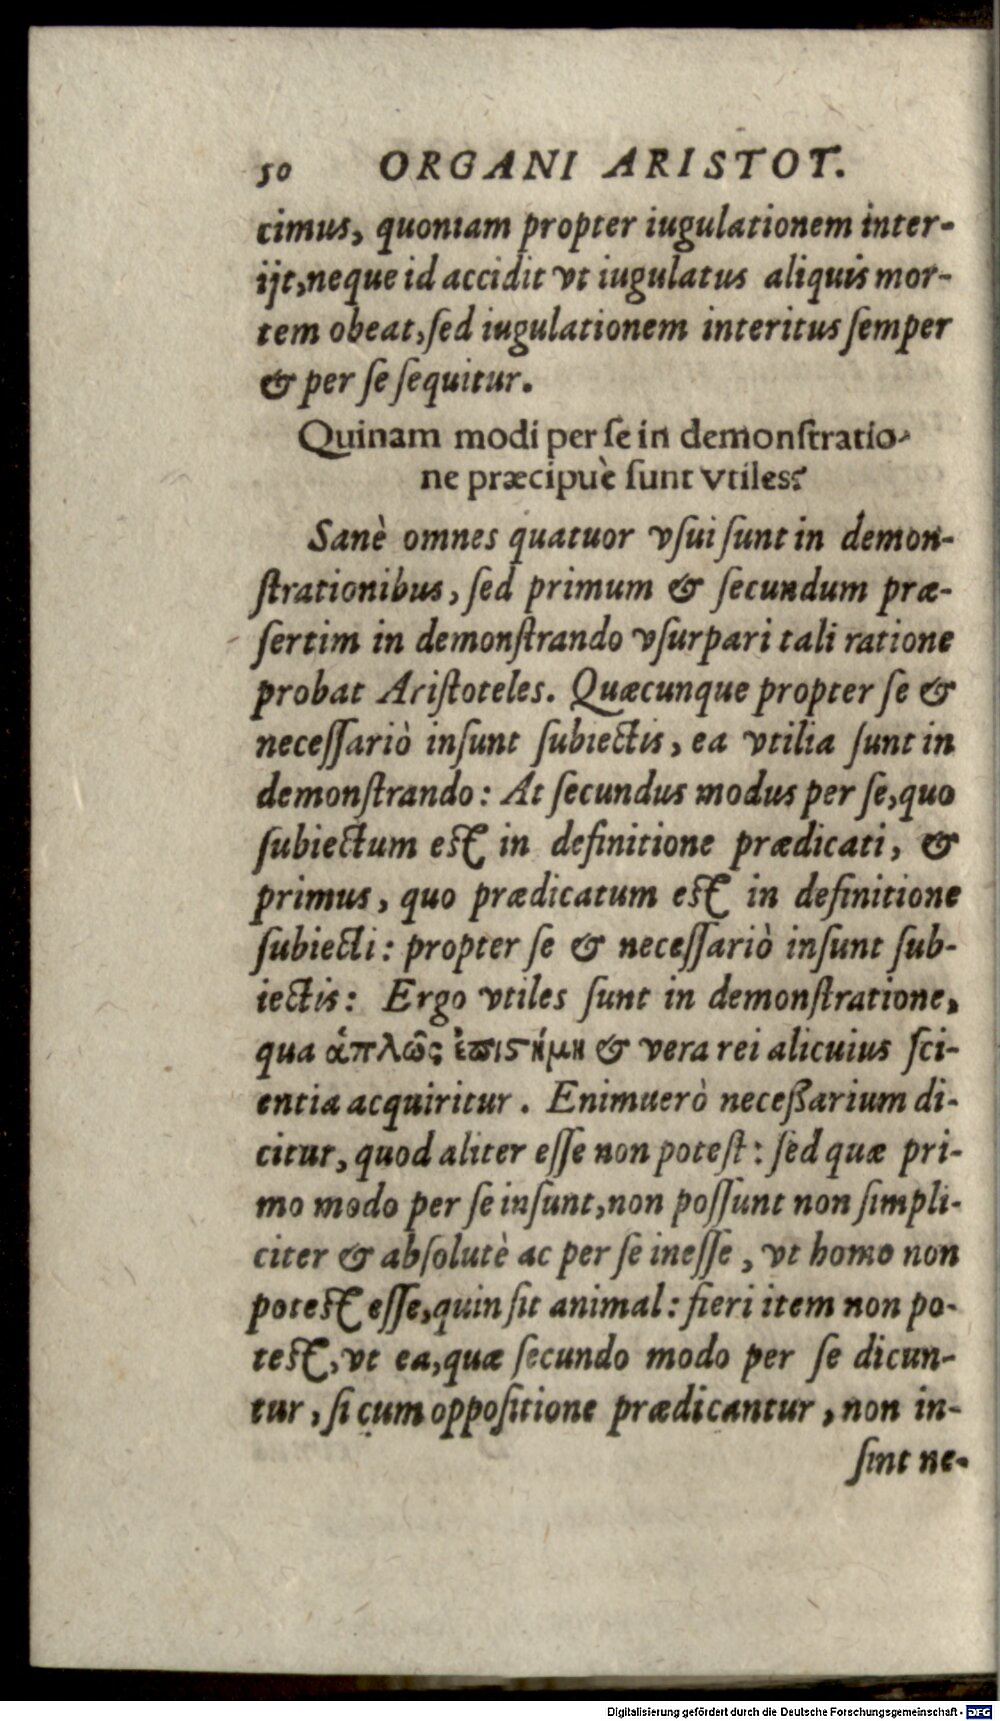 50 ORGANI ARISTOT.
cimus, quoniam propter iugulationem inter-
ijt,neque id accidit vt iugulatus aliquis mor-
tem obeat,ſed iugulationem interitus ſemper
& per ſe ſequitur.
Quinam modi per ſe in demonſtratio-
ne præcipuè ſunt vtiles?
Sanè omnes quatuor vſui ſunt in demon-
ſtrationibus, ſed primum & ſecundum præ-
ſertim in demonſtrando vſurpari tali ratione
probat Ariſtoteles. Quæcunque propter ſe &
neceſſariò inſunt ſubiectis, ea vtilia ſunt in
demonſtrando: At ſecundus modus per ſe,quo
ſubiectum est in definitione prædicati, &
primus, quo prædicatum est in definitione
ſubiecti: propter ſe & neceſſariò inſunt ſub-
iectis: Ergo vtiles ſunt in demonſtratione,
qua ἁπλῶς ἐπιϛήμη & vera rei alicuius ſci-
entia acquiritur. Enimuerò neceßarium di-
citur, quod aliter eſſe non poteſt: ſed quæ pri-
mo modo per ſe inſunt,non poſſunt non ſimpli-
citer & abſolutè ac per ſe ineſſe, vt homo non
potest eſſe,quin ſit animal: fieri item non po-
test,vt ea,quæ ſecundo modo per ſe dicun-
tur, ſi cum oppoſitione prædicantur, non in-
ſint ne-
Digitalisierung gefördert durch die Deutsche Forschungsgemeinschaft - DFG